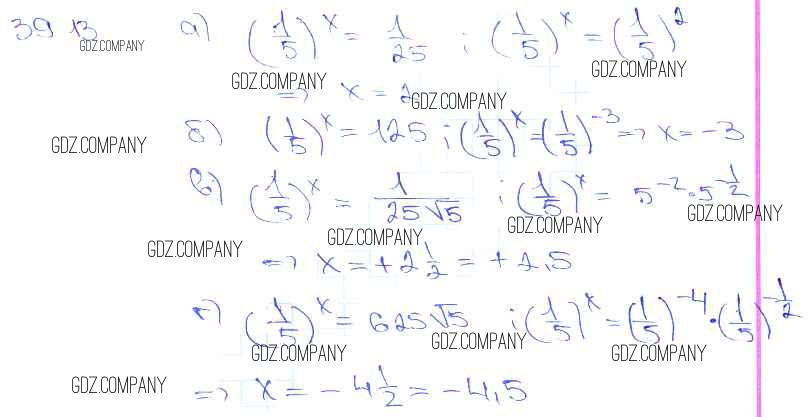 39 13 а) (1/5)^x = 1/25 ; (1/5)^x = (1/5)^2
GDZ.COMPANY
GDZ.COMPANY GDZ.COMPANY
=> x = 2
GDZ.COMPANY
б) (1/5)^x = 125 ; (1/5)^x = (1/5)^-3 => x = -3
GDZ.COMPANY
в) (1/5)^x = 1/(25√5) ; (1/5)^x = 5^-2 · 5^-1/2
GDZ.COMPANY GDZ.COMPANY GDZ.COMPANY
GDZ.COMPANY
=> x = +2 1/2 = +2,5
г) (1/5)^x = 625√5 ; (1/5)^x = (1/5)^-4 · (1/5)^-1/2
GDZ.COMPANY GDZ.COMPANY GDZ.COMPANY
GDZ.COMPANY
=> x = -4 1/2 = -4,5